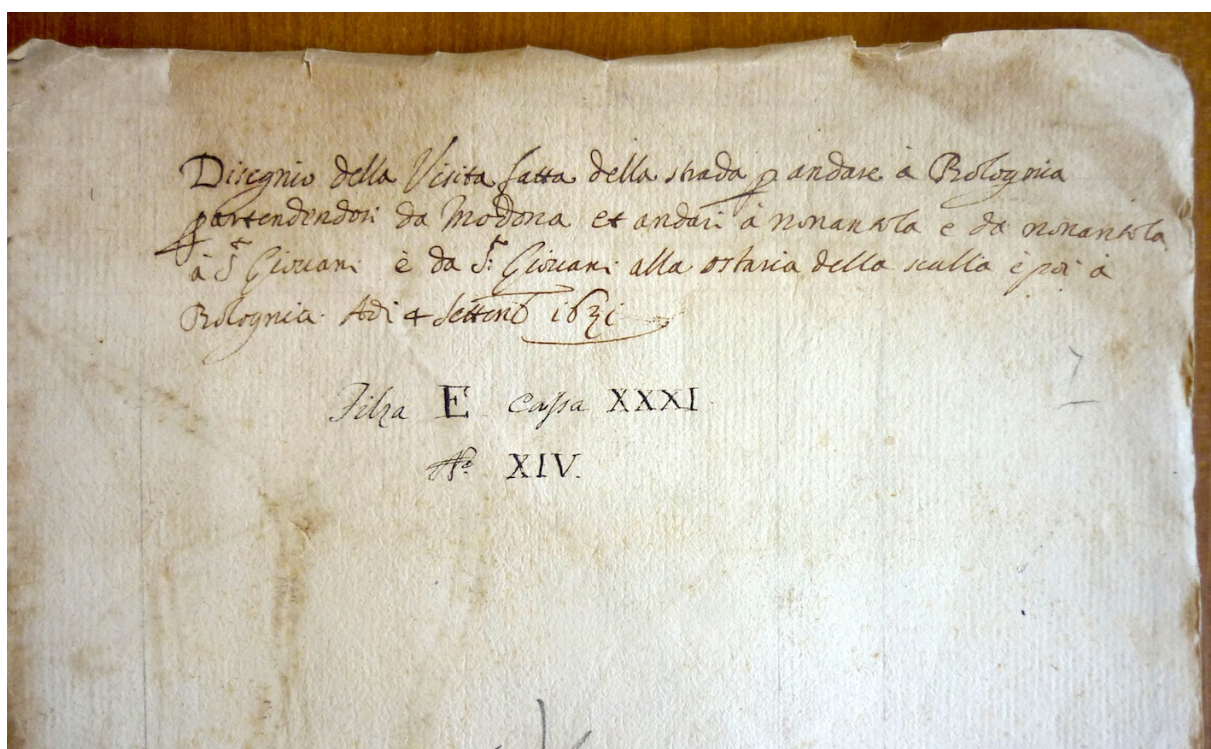 Disegnio della Visita fatta della strada p andare à Bolognia
partendendosi da Modona et andari à nonantola e da nonantola
à S.t Giovani è da S.t Giovani alla ostaria della sculla è poi à
Bolognia. Adi 4 Settemb 1631
Filza E Cassa XXXI.
N.o XIV.